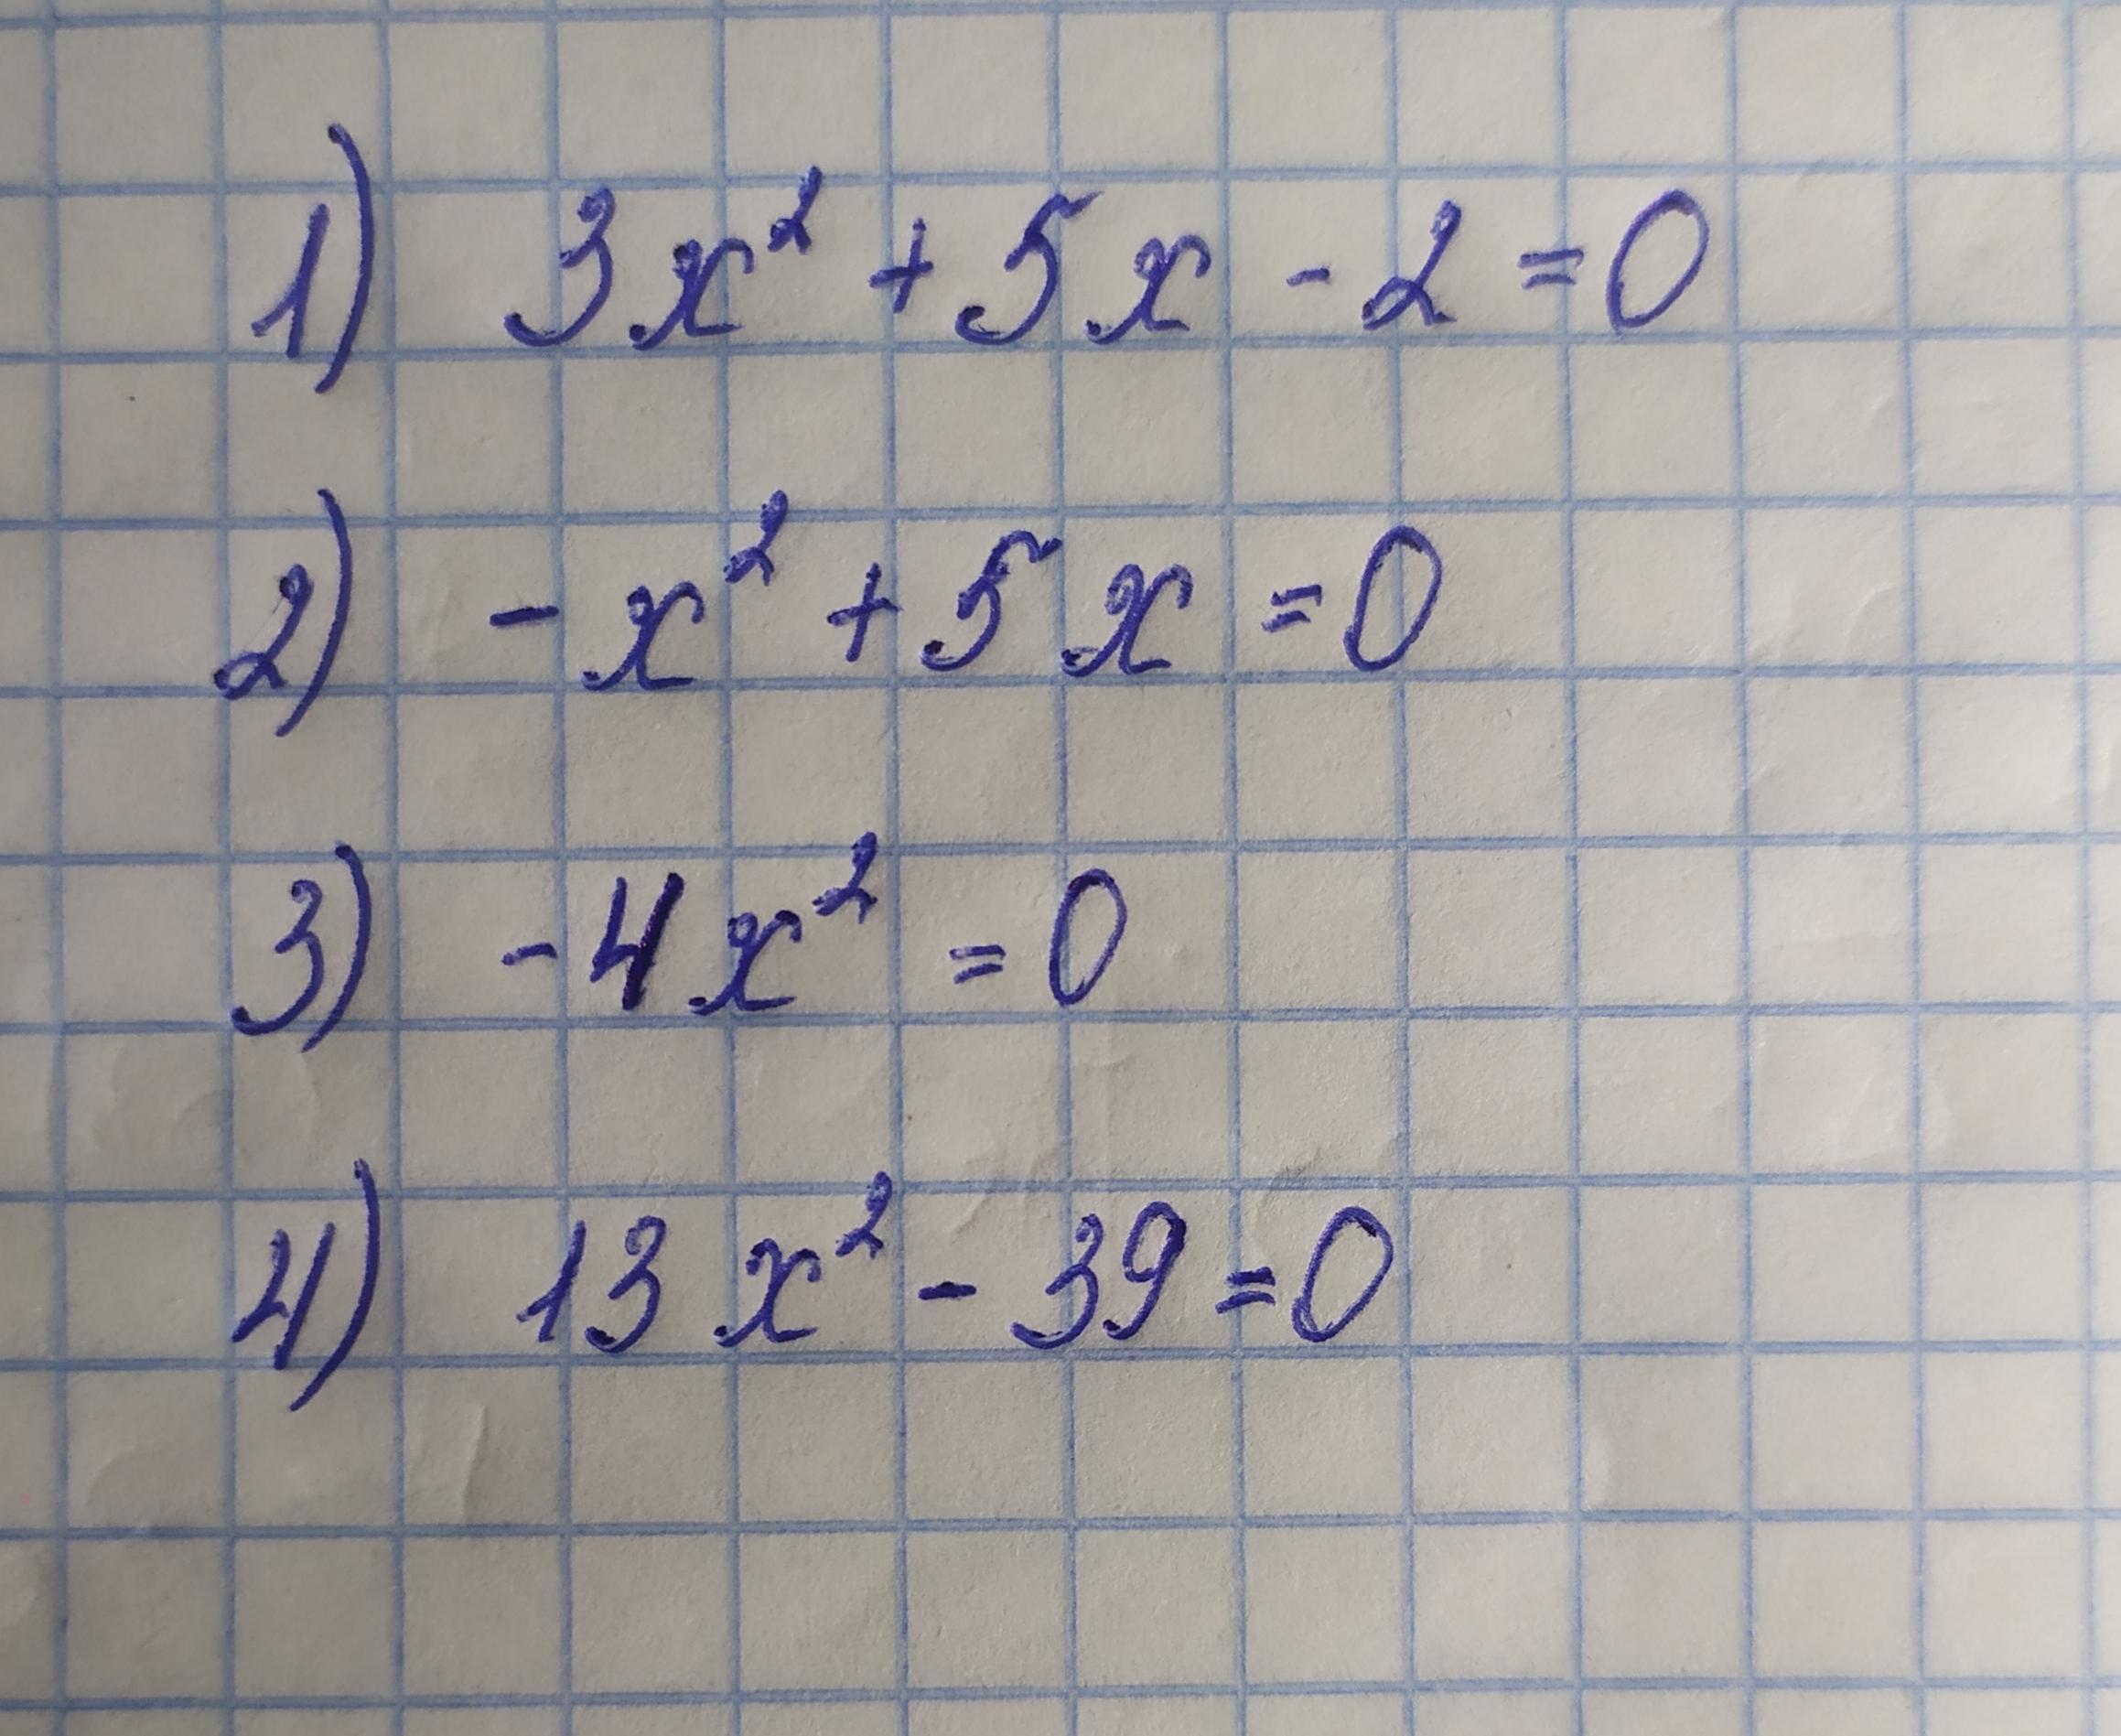 1) 3x² + 5x - 2 = 0
2) - x² + 5x = 0
3) - 4x² = 0
4) 13x² - 39 = 0